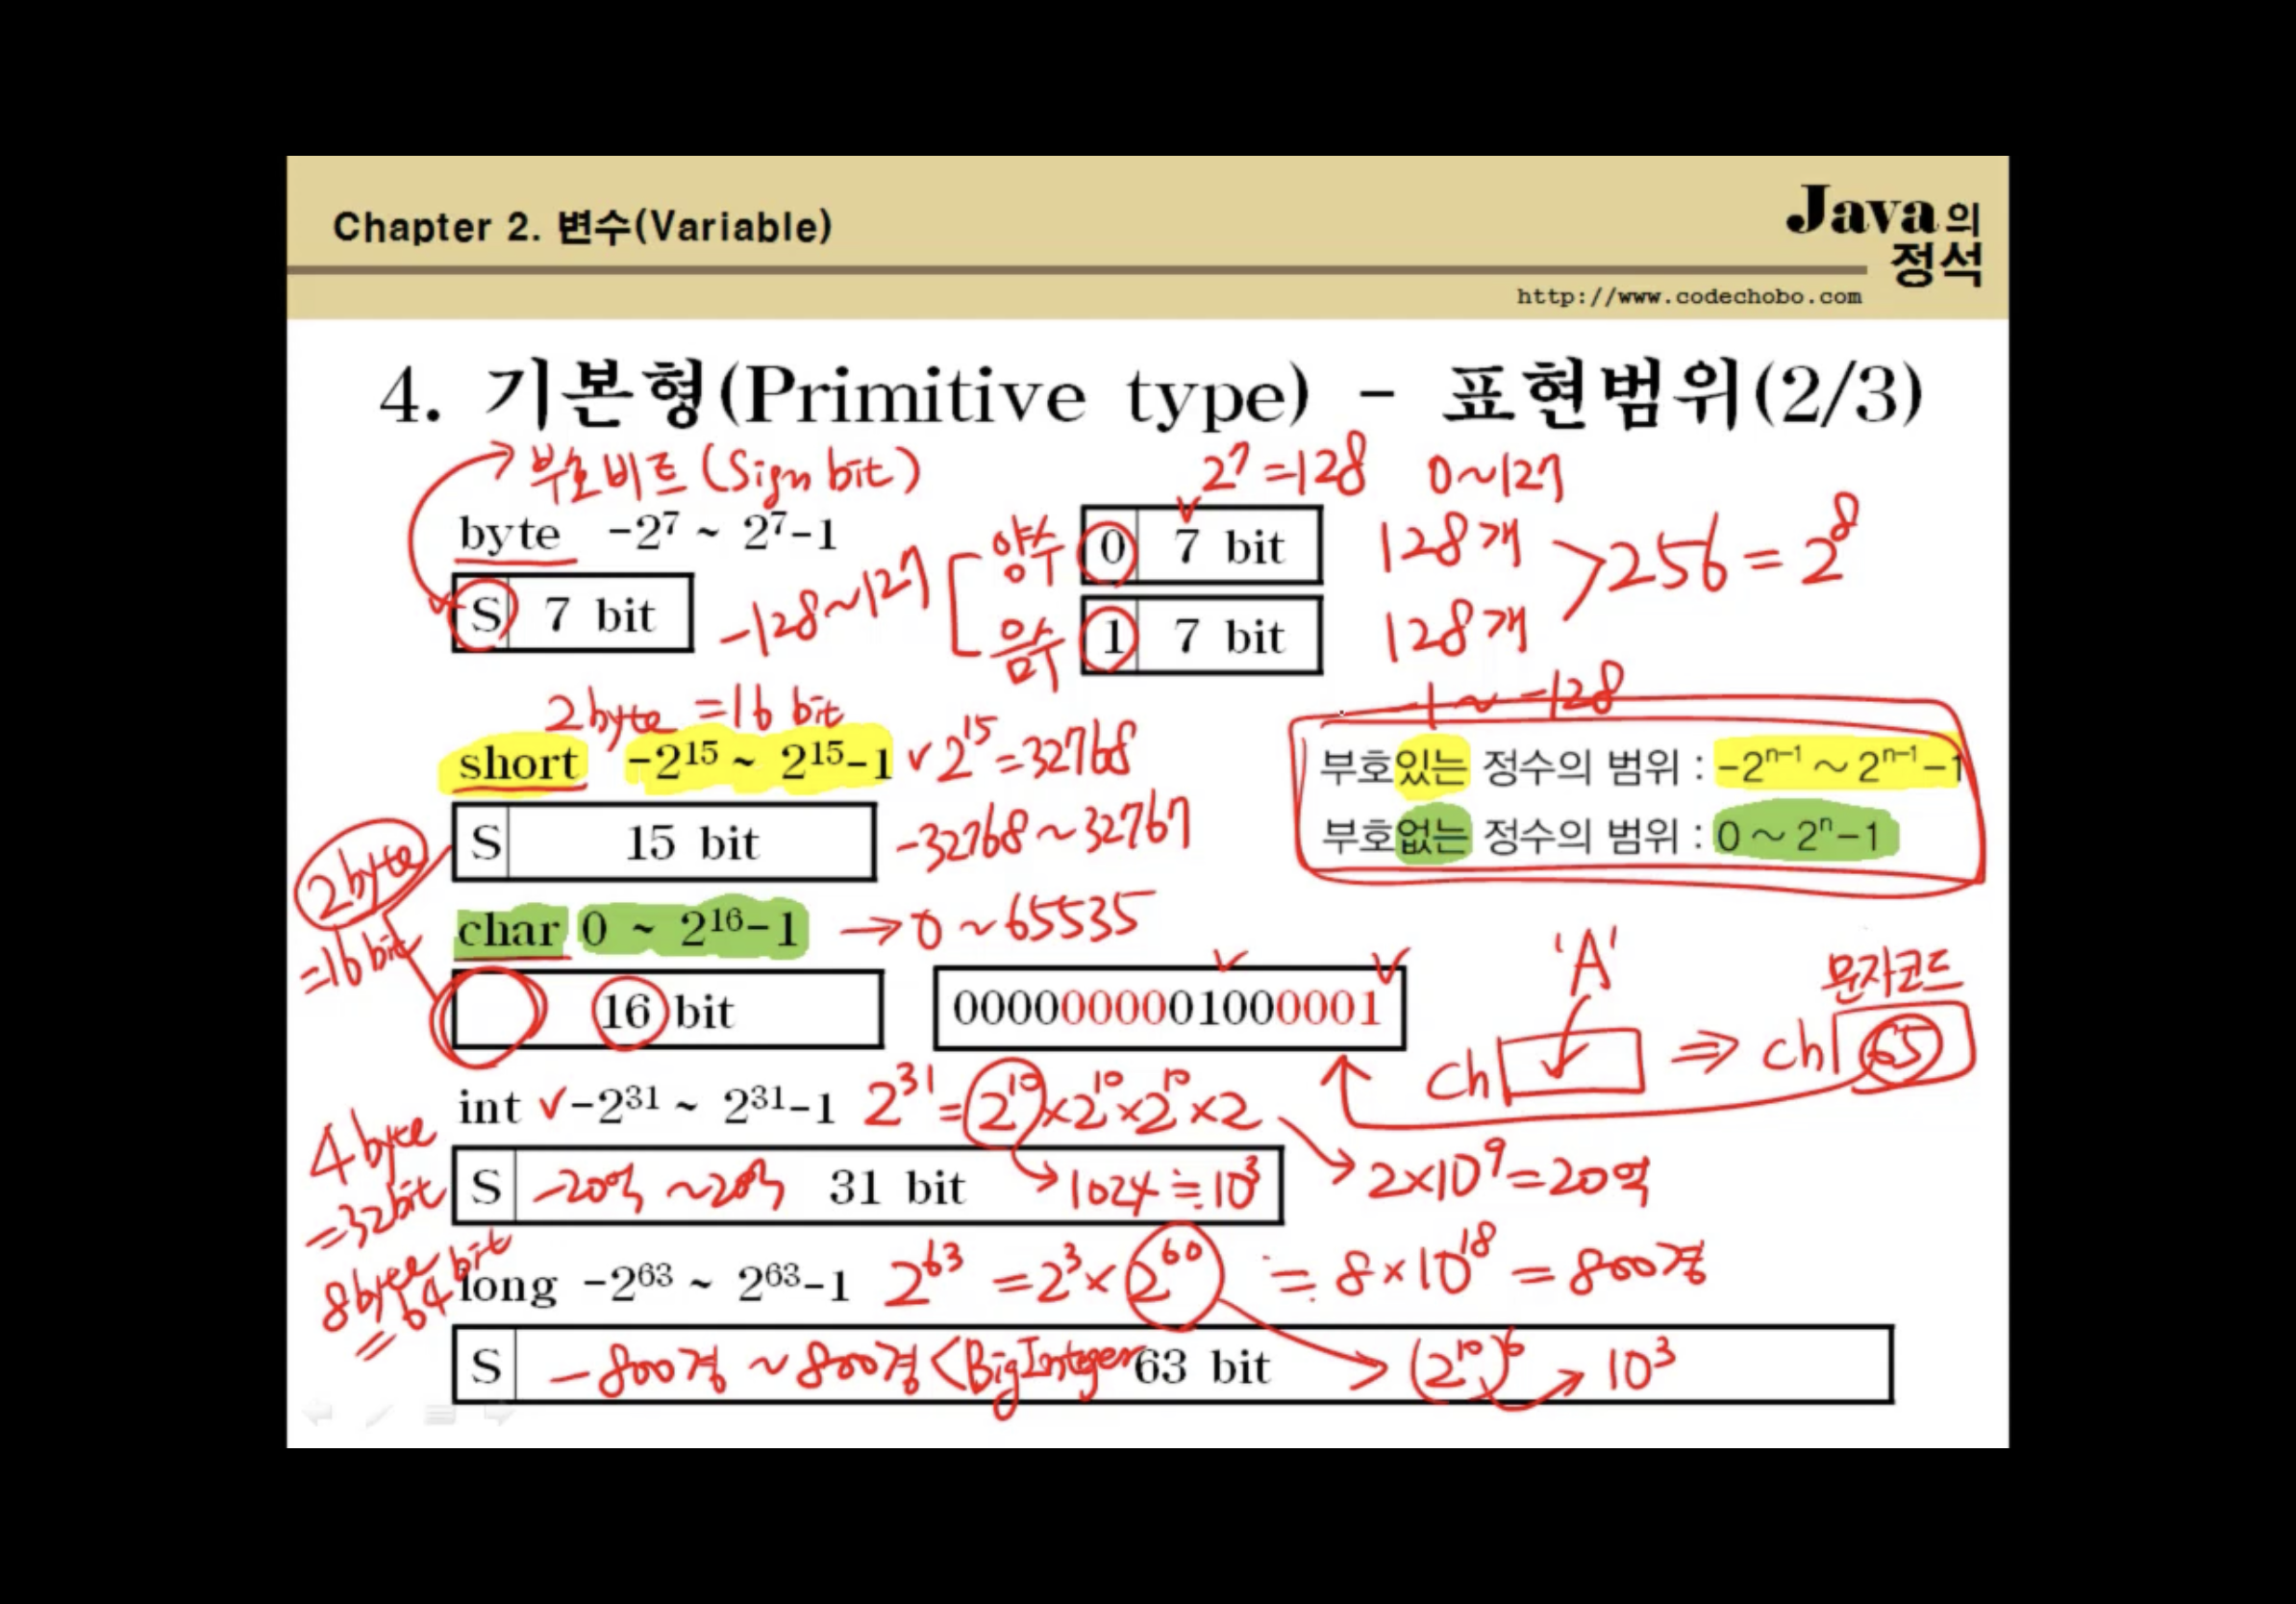 Chapter 2. 변수(Variable)
Java의
정석
http://www.codechobo.com
4. 기본형(Primitive type) - 표현범위(2/3)
부호비트 (Sign bit)
2⁷ = 128 0~127
byte -2⁷ ~ 2⁷-1
S 7 bit
-128~127
양수 0 7 bit 128개
음수 1 7 bit 128개
> 256 = 2⁸
-1 ~ -128
2byte = 16 bit
short -2¹⁵ ~ 2¹⁵-1 ✓ 2¹⁵ = 32768
S 15 bit -32768 ~ 32767
부호있는 정수의 범위 : -2ⁿ⁻¹ ~ 2ⁿ⁻¹-1
부호없는 정수의 범위 : 0 ~ 2ⁿ-1
2byte
=16 bit
char 0 ~ 2¹⁶-1 → 0 ~ 65535
16 bit
0000000001000001
'A'
문자코드
ch ⇒ ch 65
int ✓ -2³¹ ~ 2³¹-1 2³¹ = 2¹⁰ × 2¹⁰ × 2¹⁰ × 2
4 byte
=32 bit
S -20억 ~ 20억 31 bit → 1024 ≒ 10³
→ 2×10⁹ = 20억
8 byte
= 64 bit
long -2⁶³ ~ 2⁶³-1 2⁶³ = 2³ × 2⁶⁰ ≒ 8×10¹⁸ = 800경
S -800경 ~ 800경 < BigInteger 63 bit → (2¹⁰)⁶ → 10³